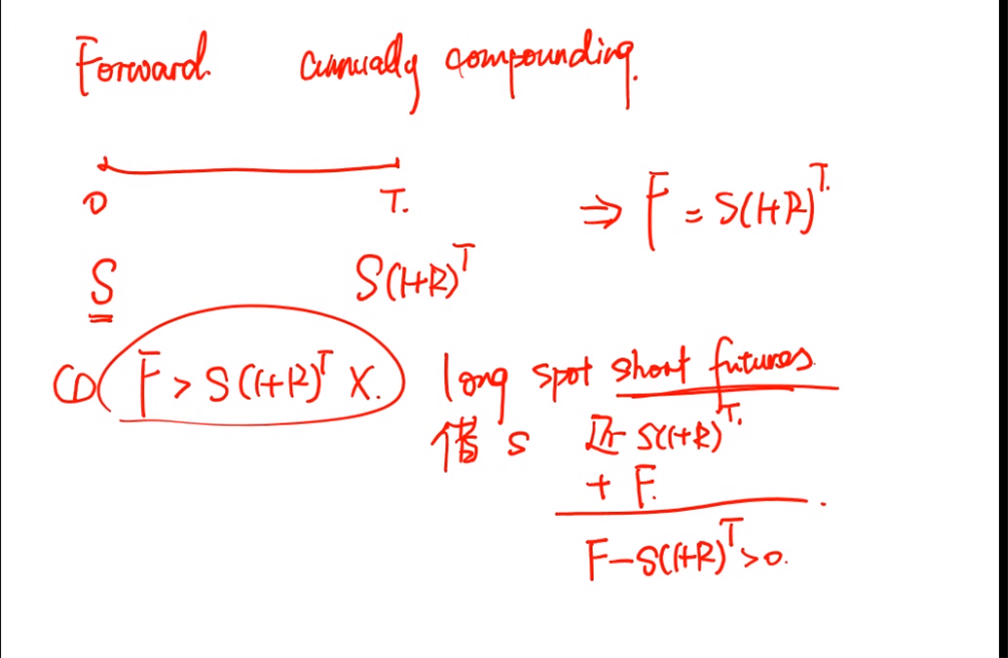 Forward. annually compounding.
0 T.
⇒ F = S(1+R)^T.
S S(1+R)^T
① F > S(1+R)^T X. long spot short futures.
借 S 还 S(1+R)^T.
+ F.
F-S(1+R)^T>0.